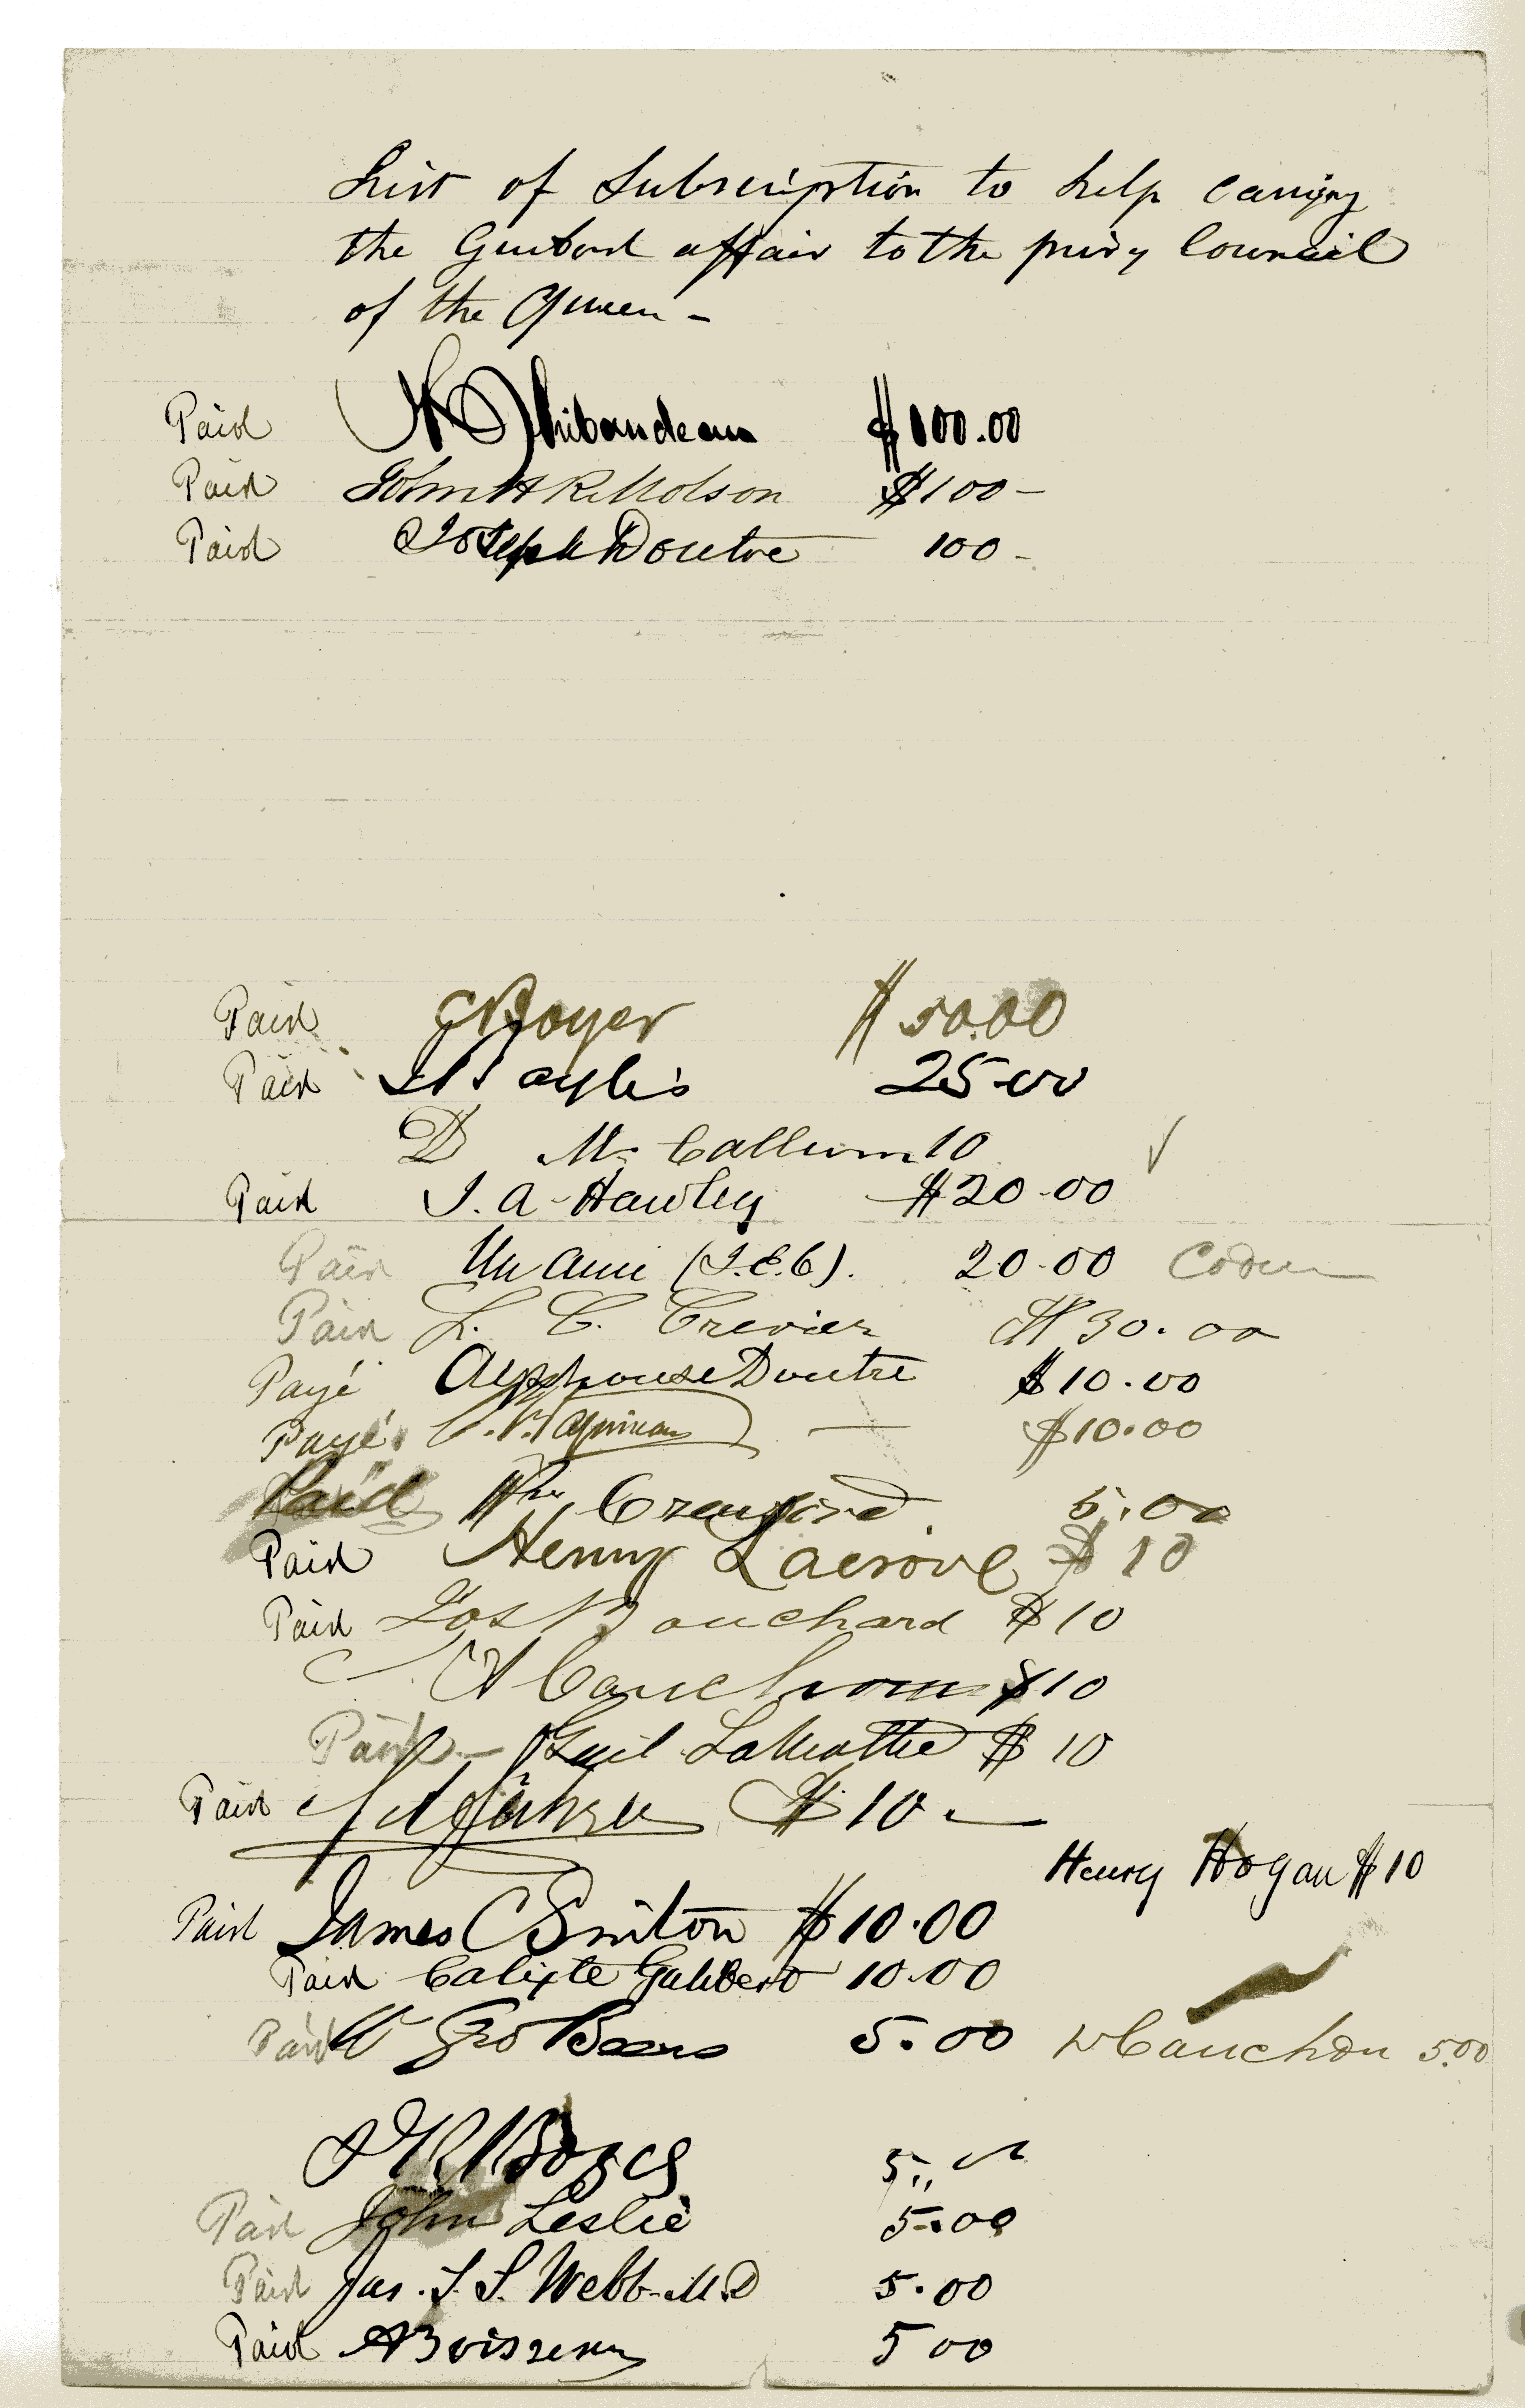 List of Subscription to help carrying
the Guibord affair to the privy Council
of the Queen -
Paid Thibaudeau $100.00
Paid John H R Molson $100-
Paid Joseph Doutre 100-
Paid Boyer $50.00
Paid Baylis 25.00
D McCallum 10
Paid J. A. Hawley $20.00
Paid Un Ami (J.E.C). 20.00 Coderre
Paid L. C. Crevier $30.00
Payé Alphonse Doutre $10.00
Payé Papineau — $10.00
Paid Wm Crawford 5.00
Paid Henry Lacroix $10
Paid Jos Bouchard $10
A Cauchon $10
Paid - Guil Lamothe $10
Paid $10-
Henry Hogan $10
Paid James C Sinton $10.00
Paid Calixte Galibert 10.00
Paid W Geo Beers 5.00 Cauchon 5.00
5"
Paid John Leslie 5.00
Paid Jas. T. S. Webb M.D 5.00
Paid A Boisseau 5 00